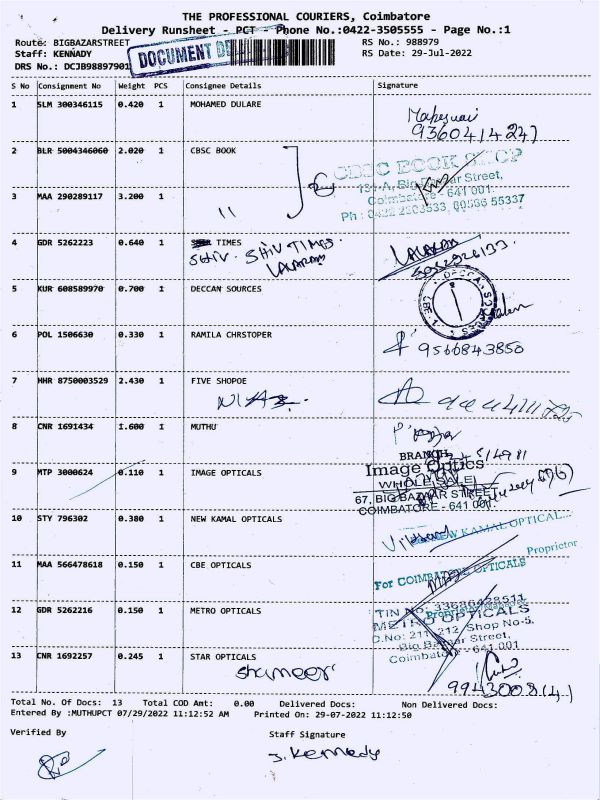 THE PROFESSIONAL COURIERS, Coimbatore
Delivery Runsheet - PCT - Phone No.:0422-3505555 - Page No.:1
Route: BIGBAZARSTREET RS No.: 988979
Staff: KENNADY RS Date: 29-Jul-2022
DRS No.: DCJB98897901
DOCUMENT
S No Consignment No Weight PCS Consignee Details Signature
1 SLM 300346115 0.420 1 MOHAMED DULARE
2 BLR 5004346060 2.020 1 CBSC BOOK
CBSC BOOK SHOP
Street,
3 MAA 290289117 3.200 1
Coimbatore - 641 001.
4 GDR 5262223 0.640 1 TIMES
SHIV TIMES
LALARAM
5 KUR 608589970 0.700 1 DECCAN SOURCES
6 POL 1506630 0.330 1 RAMILA CHRSTOPER
9566843850
7 HHR 8750003529 2.430 1 FIVE SHOPOE
8 CNR 1691434 1.600 1 MUTHU
BRANCH
9 MTP 3000624 0.110 1 IMAGE OPTICALS
Image Optics
WHOLE SALE
67, BIG BAZAAR STREET
COIMBATORE - 641 001.
10 STY 796302 0.380 1 NEW KAMAL OPTICALS
NEW KAMAL OPTICAL...
Proprietor
11 MAA 566478618 0.150 1 CBE OPTICALS
For COIMBATORE OPTICALS
12 GDR 5262216 0.150 1 METRO OPTICALS
METRO OPTICALS
D.No: 211, 212, Shop No-5,
Big Bazaar Street,
Coimbatore - 641 001
13 CNR 1692257 0.245 1 STAR OPTICALS
shameer
Total No. Of Docs: 13 Total COD Amt: 0.00 Delivered Docs: Non Delivered Docs:
Entered By :MUTHUPCT 07/29/2022 11:12:52 AM Printed On: 29-07-2022 11:12:50
Verified By Staff Signature
J. Kennedy